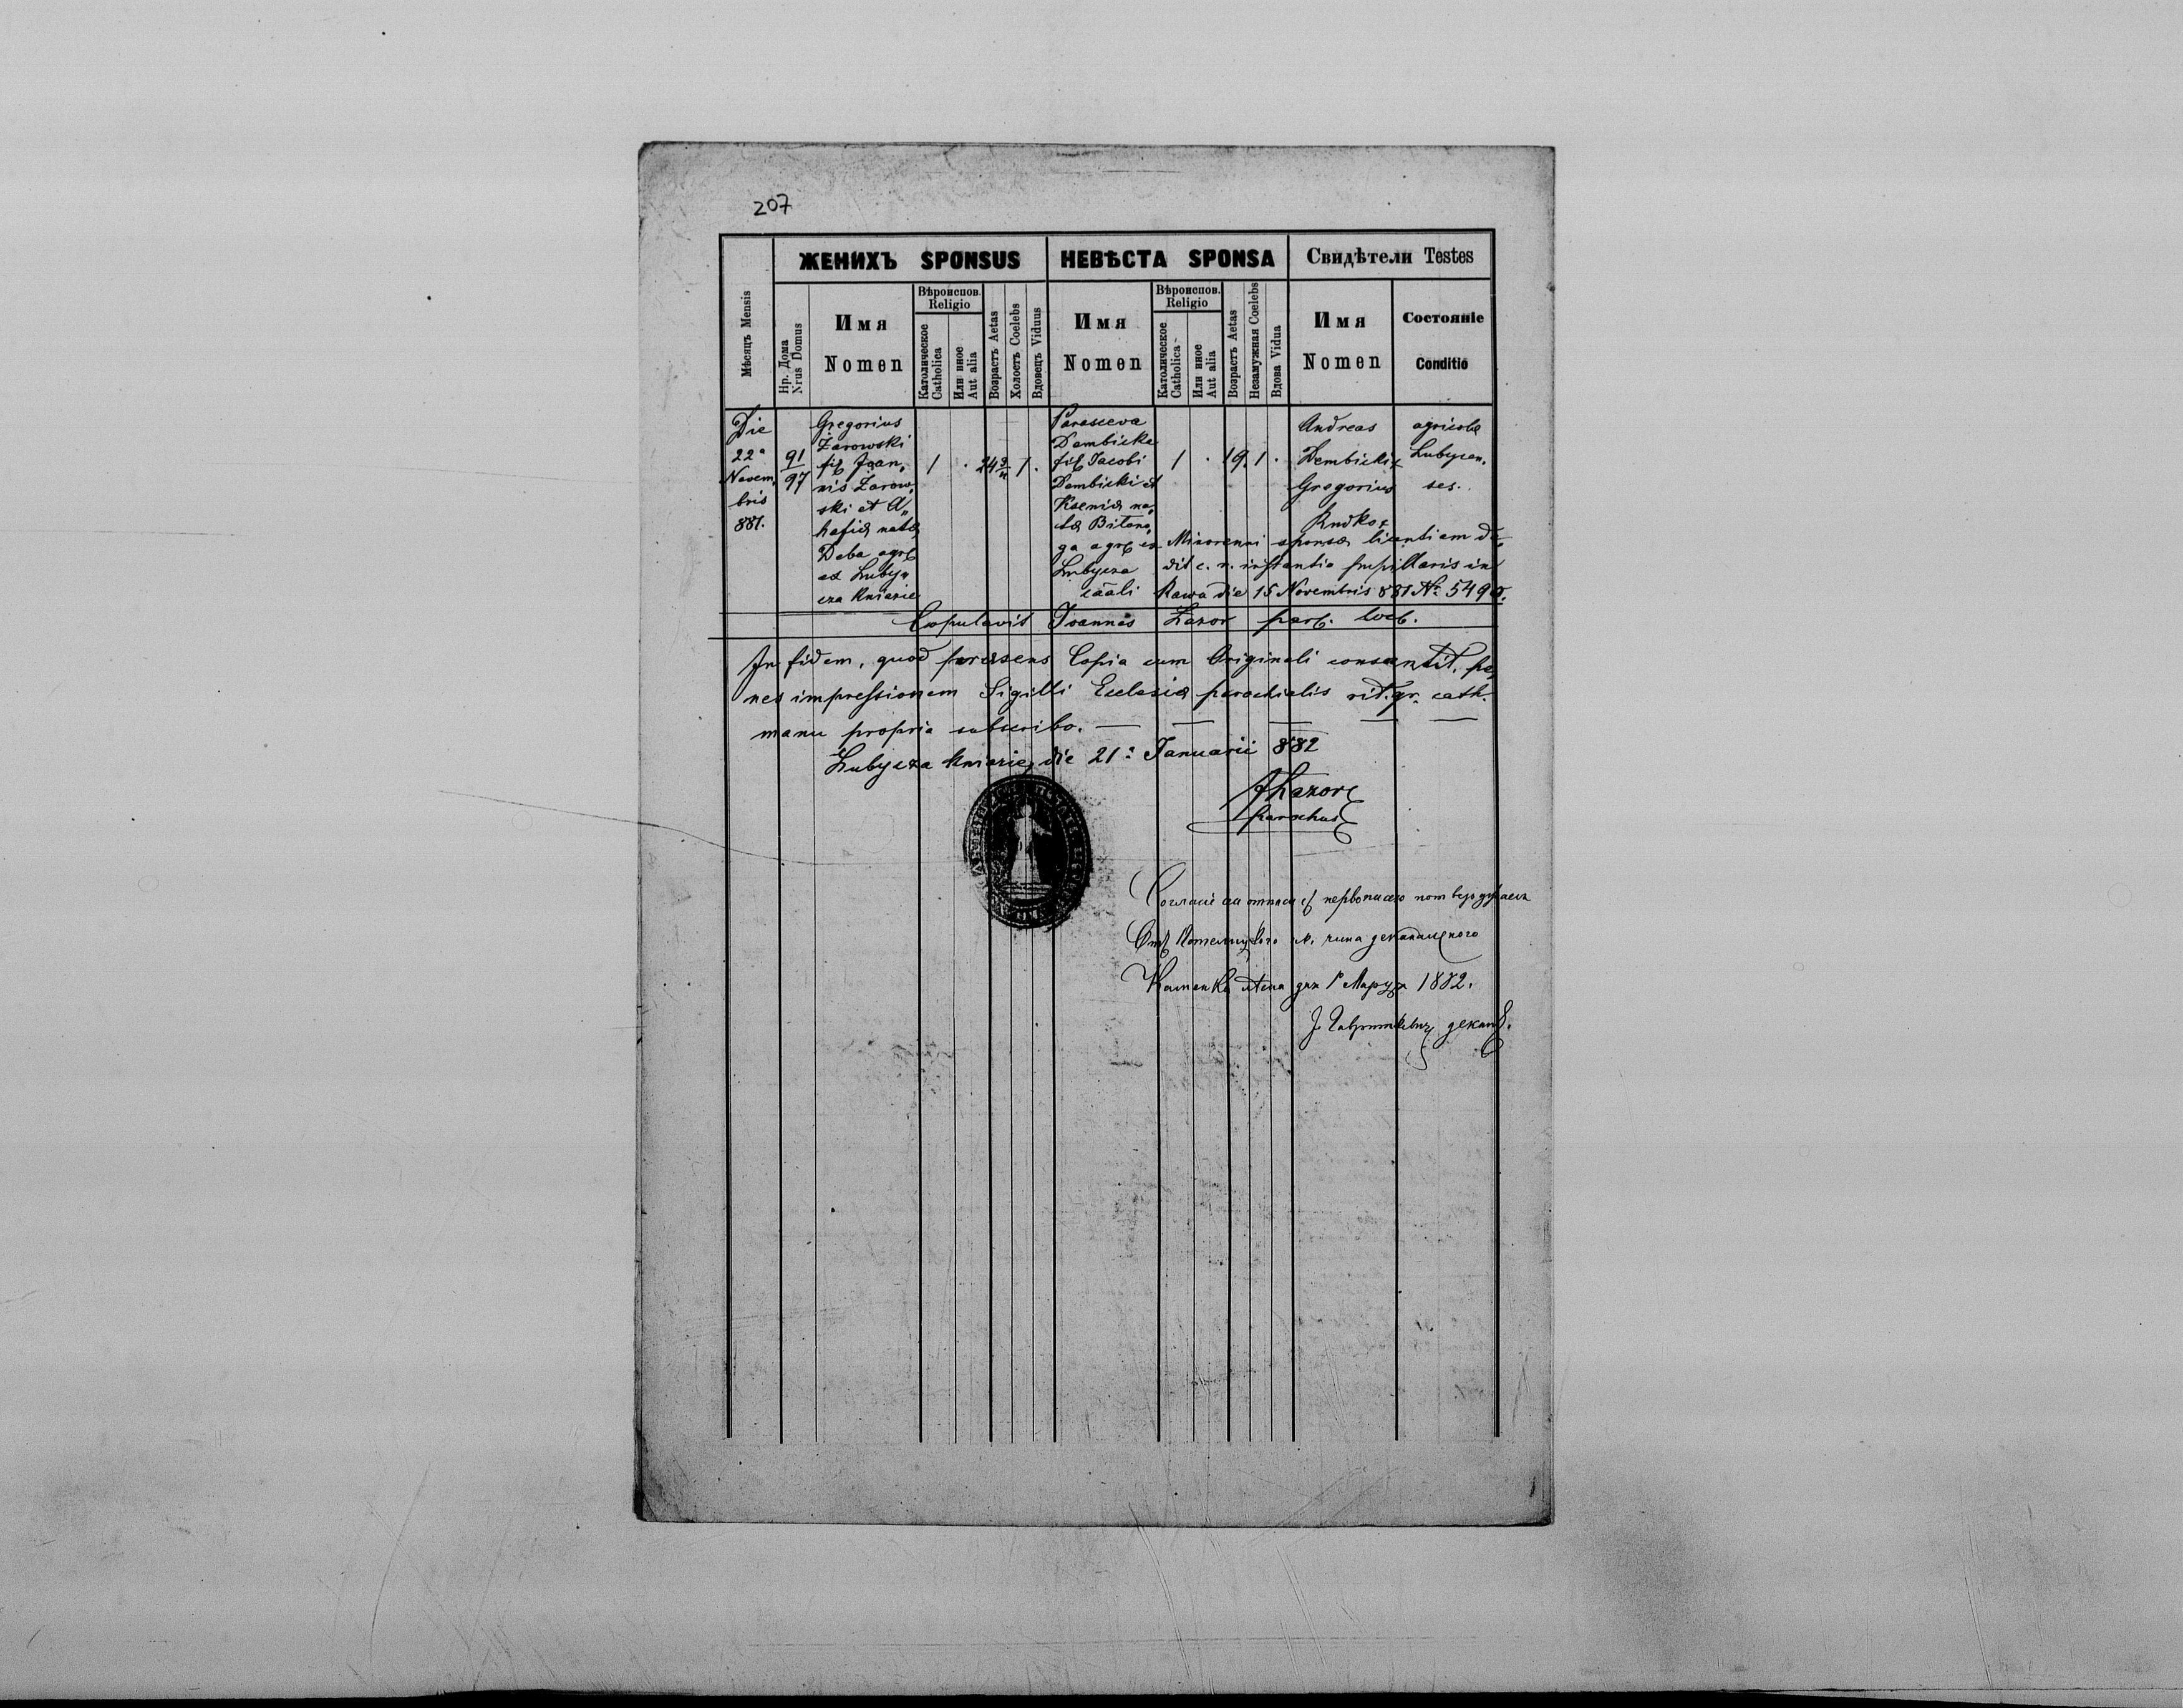 207
ЖЕНИХЪ SPONSUS НЕВѢСТА SPONSA Свидѣтели Testes
Мѣсяцъ Mensis
Нр. Дома Nrus Domus
Имя Nomen
Вѣроиспов. Religio
Католическое Catholica
Или иное Aut alia
Возрастъ Aetas
Холостъ Coelebs
Вдовецъ Viduus
Имя Nomen
Вѣроиспов. Religio
Католическое Catholica
Или иное Aut alia
Возрастъ Aetas
Незамужная Coelebs
Вдова Vidua
Имя Nomen
Состоянiе Conditio
Die
22a
Novem,
bris
881.
91
97
Gregorius
Żarowski
fil Joan,
nis Żarow,
ski et A,,
hafiæ natæ
Deba agr
ex Luby,,
cza Kniazie
1 . 24 1 .
Parasceva
Dembicka
fil Jacobi
Dembicki et
Kseniæ na,
tæ Bitana,
ga agr ex
Lubycza
1 . 19. 1 .
Andreas
Dembicki
Gregorius
Rudko
agricolæ
Lubycen,
ses.
Minorenni sponsæ licentiam de,
dit c. r. instantia pupillaris in
Rawa die 15 Novembris 881 No 5490.
Copulavit Joannes Lazor par. loc.
In fidem, quod præsens Copia cum Originali consentit, pe,
nes impressionem Sigilli Ecclesiæ parochialis rit. gr. cath.
manu propria subscribo.
Lubycza Kniazie, die 21a Januarii 882
JLazor
parochus
1882.